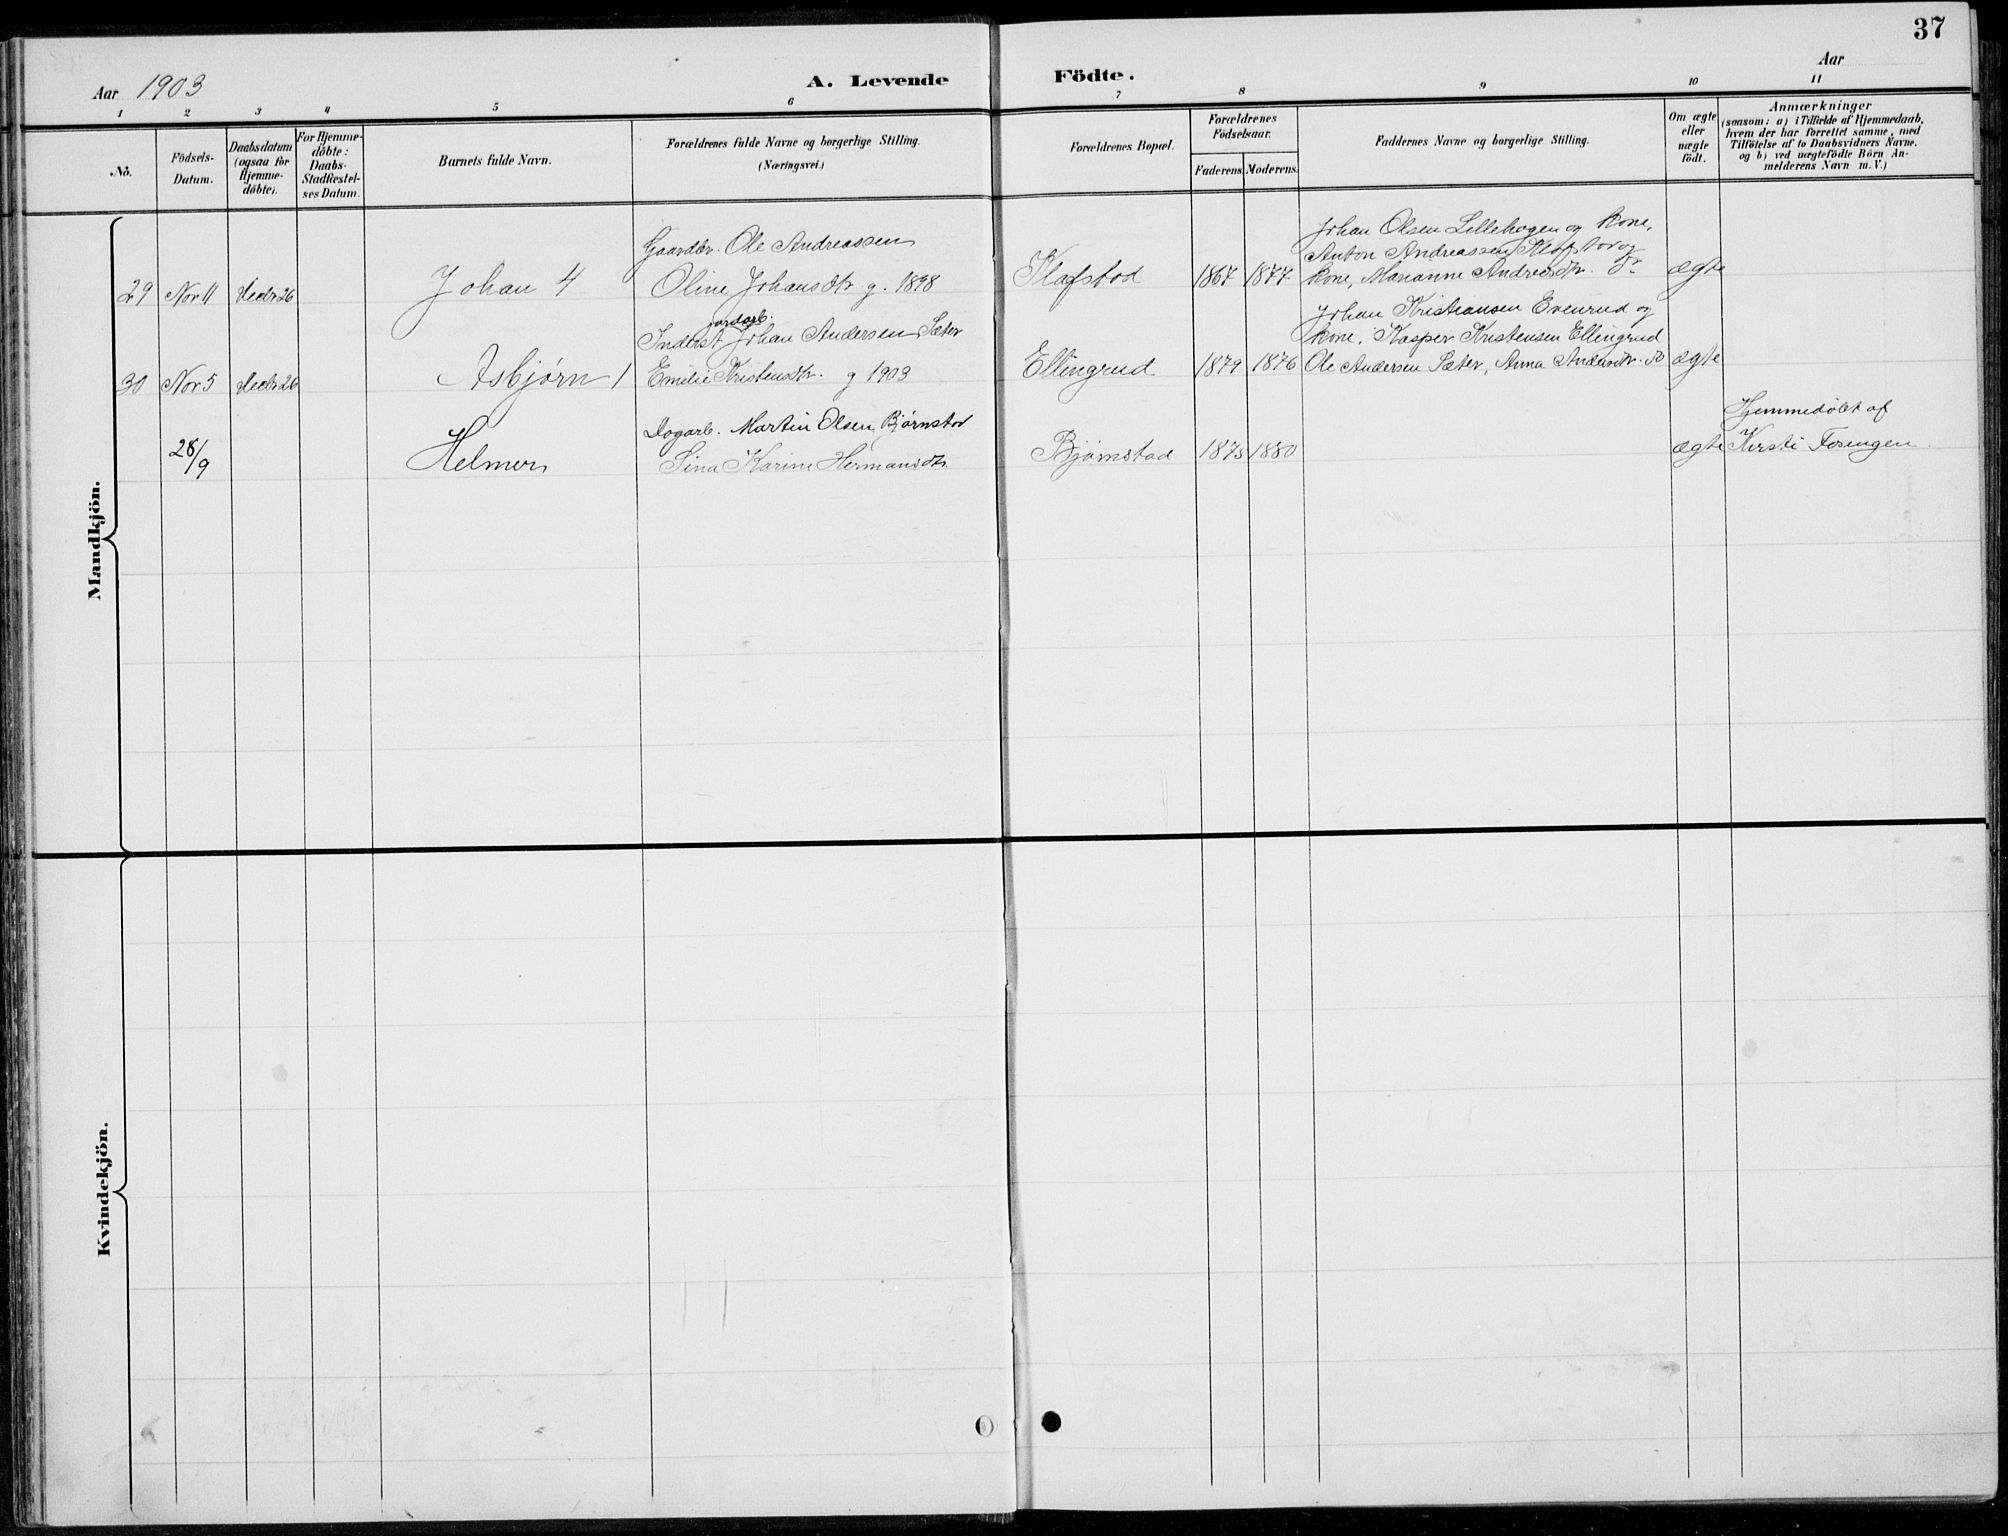 37
Aar 1903
A. Levende Födte.
Aar
1 2 3 4 5 6 7 8 9 10 11
No.
Födsels-Datum.
Daabsdatum (ogsaa for Hjemme-döbte).
For Hjemme-döbte: Daabs-Stadfæstel-ses Datum.
Barnets fulde Navn.
Forældrenes fulde Navne og borgerlige Stilling.
(Næringsvei.)
Forældrenes Bopæl.
Forældrenes Födselsaar.
Faderens. Moderens.
Faddernes Navne og borgerlige Stilling.
Om ægte eller uægte födt.
Anmærkninger
(saasom: a) i Tilfælde af Hjemmedaab,
hvem der har forrettet samme, med
Tilföielse af to Daabsvidners Navne,
og b) ved uægtefödte Börn An-
melderens Navn m. V.)
Mandkjön.
29 Nov 11 Decbr 26 Johan 4
Gaardbr. Ole Andreassen
Oline Johansdtr g. 1898
Klafstad 1867 1877
Johan Olsen Lillehagen og kone,
Anton Andreassen Klafstad og
kone, Marianne Andreasdtr.
ægte
30 Nov 5 Decbr 26 Asbjørn 1
jordarb.
Inderst Johan Andersen Sæter
Emilie Kristensdtr. g 1903
Ellingrud 1879 1876
Johan Kristiansen Evenrud og
kone, Kasper Kristensen Ellingrud
Ole Andersen Sæter, Anna Andersdtr. do
ægte
28/9 Helmer
Dagarb. Martin Olsen Bjørnstad
Sina Karine Hermansdtr.
Bjørnstad 1875 1880
ægte
Hjemmedøbt af
Kirsti Fosengen.
Kvindekjön.